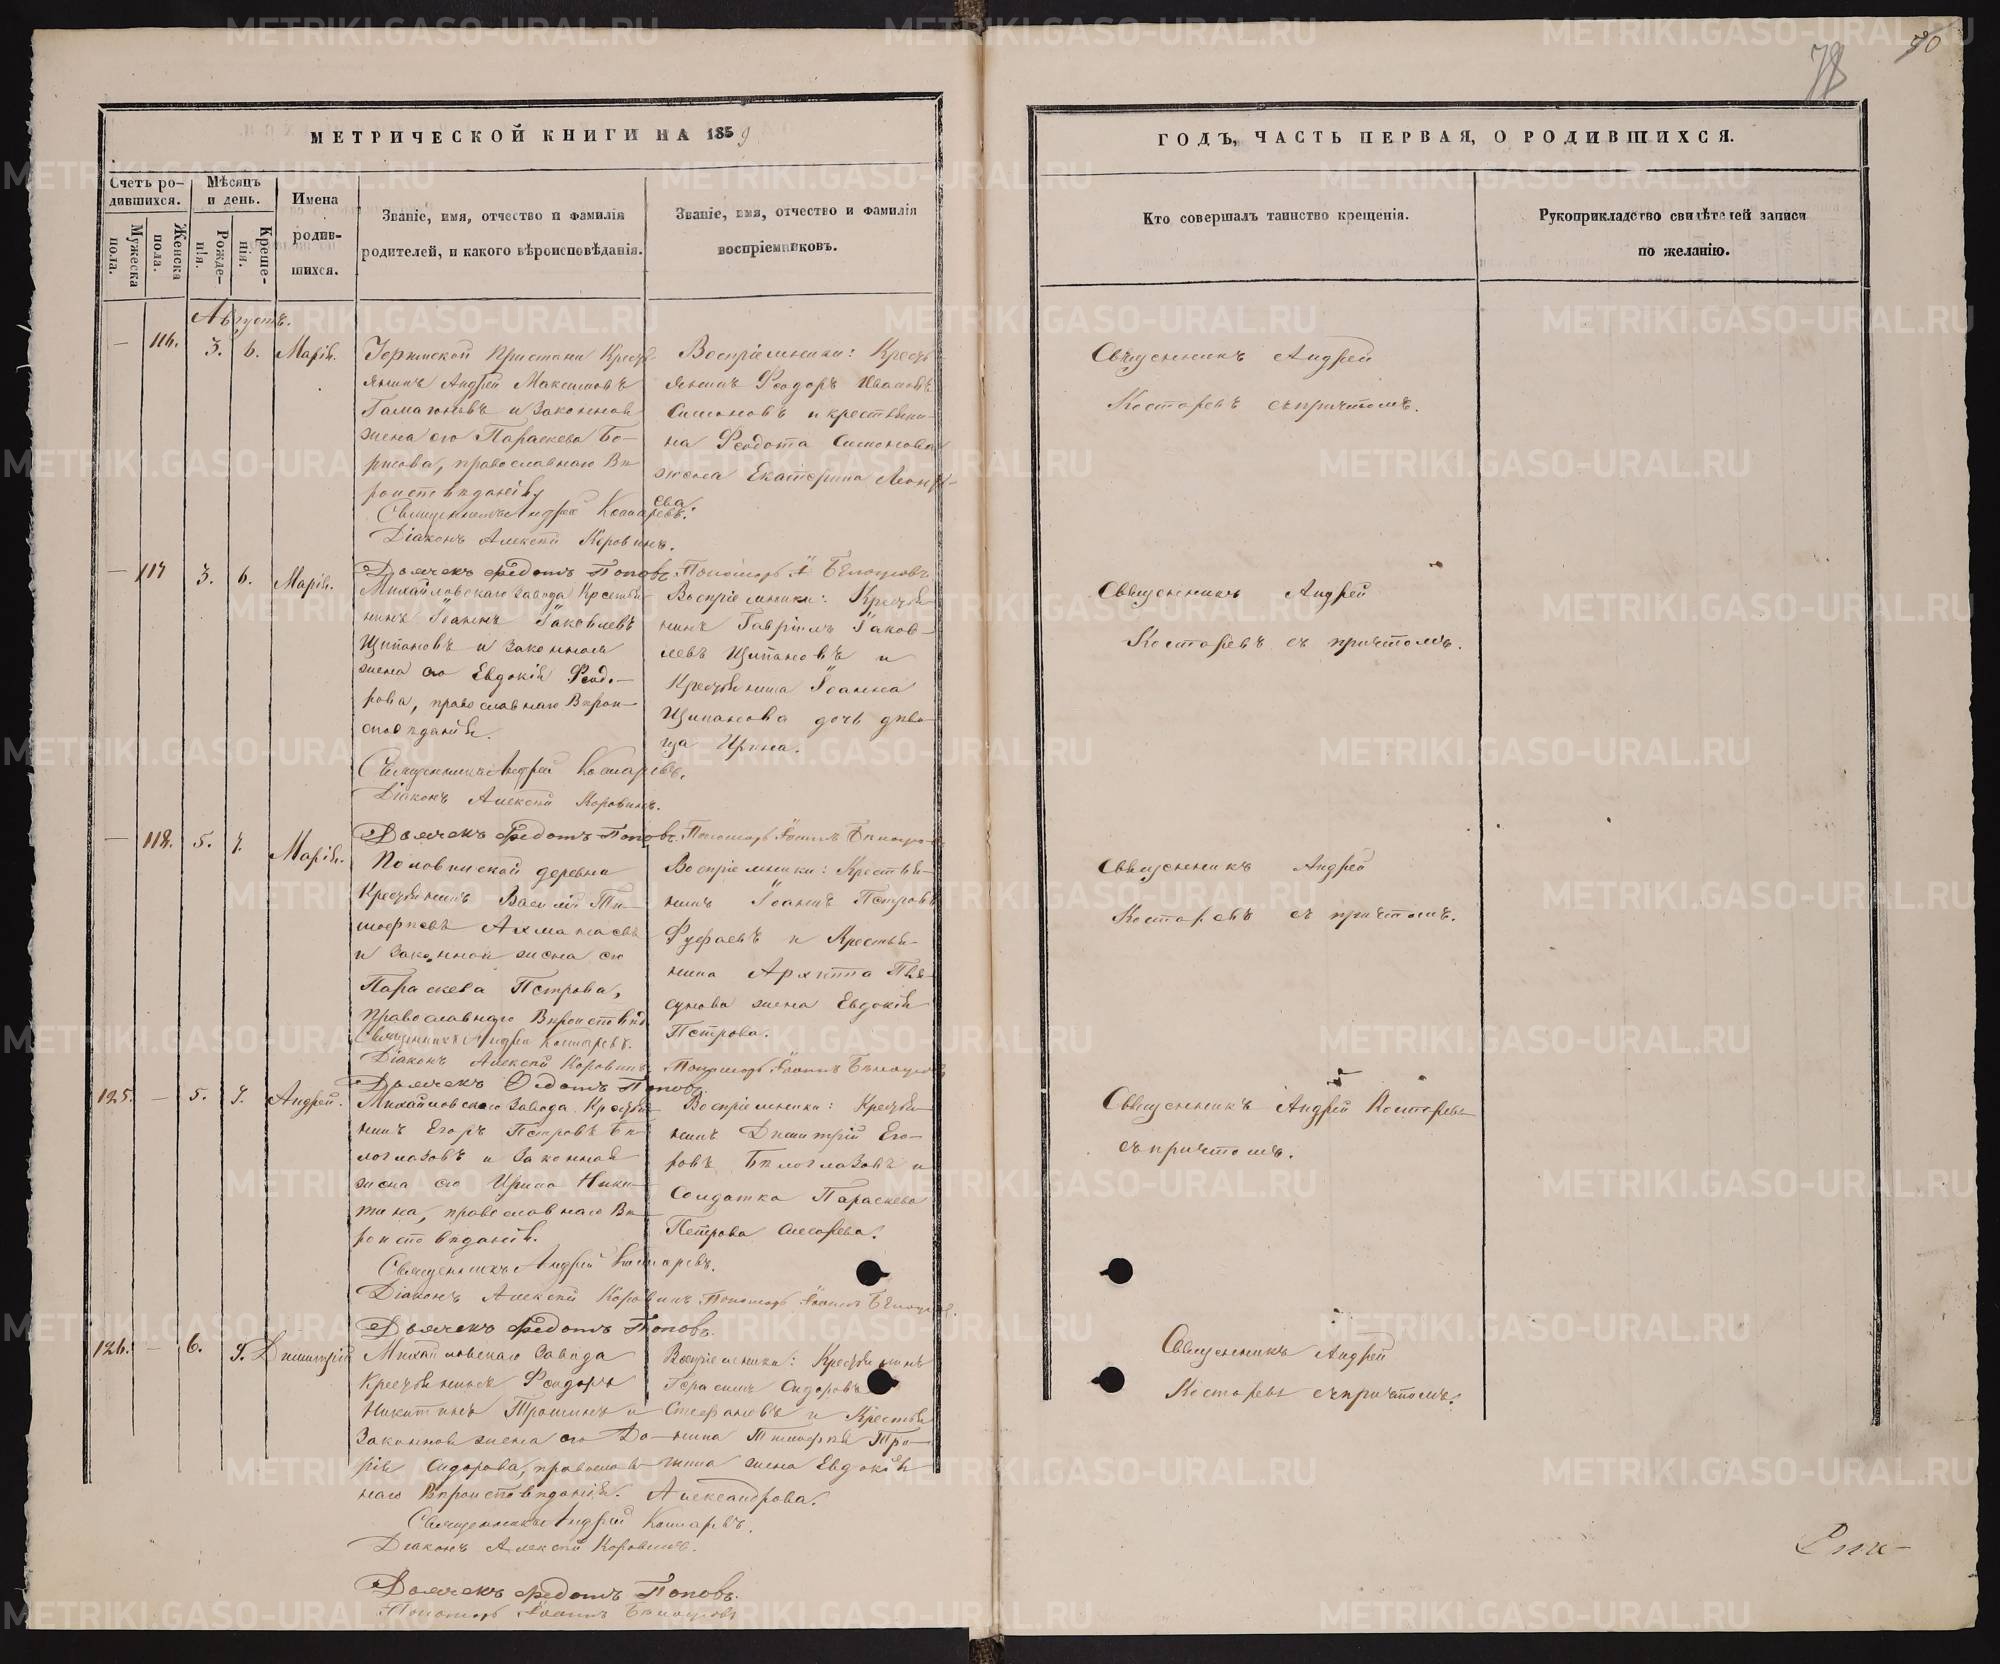 78
70
МЕТРИЧЕСКОЙ КНИГИ НА 1859
ГОДЪ, ЧАСТЬ ПЕРВАЯ, О РОДИВШИХСЯ.
Счетъ ро-
дившихся.
Мужеска
пола.
Женска
пола.
Мѣсяцъ
и день.
Рожде-
нія.
Креще-
нія.
Имена
родив-
шихся.
Званіе, имя, отчество и фамилія
родителей, и какого вѣроисповѣданія.
Званіе, имя, отчество и фамилія
воспріемниковъ.
Кто совершалъ таинство крещенія.
Рукоприкладство свидѣтелей записи
по желанію.
Августъ.
— 116. 3. 6. Марія.
Пристани Кресть-
янинъ Андрей Максимовъ
и законная
жена его Параскева Бо-
рисова, православнаго Вѣ-
роисповѣданія
Священникъ Андрей Костаревъ.
Діаконъ Алексѣй Коровинъ.
Дьячекъ Федотъ Поповъ.
Воспріемники: Кресть-
янинъ Феодоръ Ивановъ
Симоновъ и крестьяни-
на Феодота Симонова
жена Екатерина Леонтъ-
ева.
Священникъ Андрей
Костаревъ съ причтомъ.
— 117 3. 6. Марія.
Михайловскаго завода Крестья-
нинъ Іоаннъ Іаковлевъ
Щипановъ и законная
жена его Евдокія Феодо-
рова, православнаго Вѣрои-
сповѣданія.
Священникъ Андрей Костаревъ.
Діаконъ Алексѣй Коровинъ.
Дьячекъ Федотъ Поповъ.
Воспріемники: Крестья-
нинъ Гавріилъ Іаков-
левъ Щипановъ и
Крестьянина Іоанна
Щипанова дочь дѣви-
ца Ирина.
Священникъ Андрей
Костаревъ съ причтомъ.
— 118. 5. 7. Марія.
Половинской деревни
Крестьянинъ Василій Ти-
мофеевъ
и законная жена его
Параскева Петрова,
православнаго Вѣроисповѣд.
Священникъ Андрей Костаревъ.
Діаконъ Алексѣй Коровинъ
Дьячекъ Федотъ Поповъ.
Воспріемники: Крестья-
нинъ Іоаннъ Петровъ
и Крестья-
нина Архиппа
жена Евдокія
Петрова.
Священникъ Андрей
Костаревъ съ причтомъ.
125. — 5. 7. Андрей.
Михайловскаго Завода Крестья-
нинъ Егоръ Петровъ Бѣ-
логлазовъ и Законная
жена его Ирина Ники-
тина, православнаго Вѣ-
роисповѣданія.
Священникъ Андрей Костаревъ.
Діаконъ Алексѣй Коровинъ
Дьячекъ Федотъ Поповъ.
Воспріемники: Крестья-
нинъ Димитрій Его-
ровъ Бѣлоглазовъ и
Солдатка Параскева
Петрова Слесарева.
Священникъ Андрей Костаревъ
съ причтомъ.
126. — 6. 7. Димитрій
Михайловскаго Завода
Крестьянинъ Феодоръ
Никитинъ Трошинъ и
Законная жена его Да-
рія Сидорова, православ-
наго Вѣроисповѣданія.
Священникъ Андрей Костаревъ.
Діаконъ Алексѣй Коровинъ.
Дьячекъ Федотъ Поповъ.
Воспріемники: Крестьянинъ
Герасимъ Сидоровъ
Стефановъ и Крестья-
нина Тимофея Тро-
шина жена Евдокія
Александрова.
Священникъ Андрей
Костаревъ съ причтомъ.
METRIKI.GASO-URAL.RU